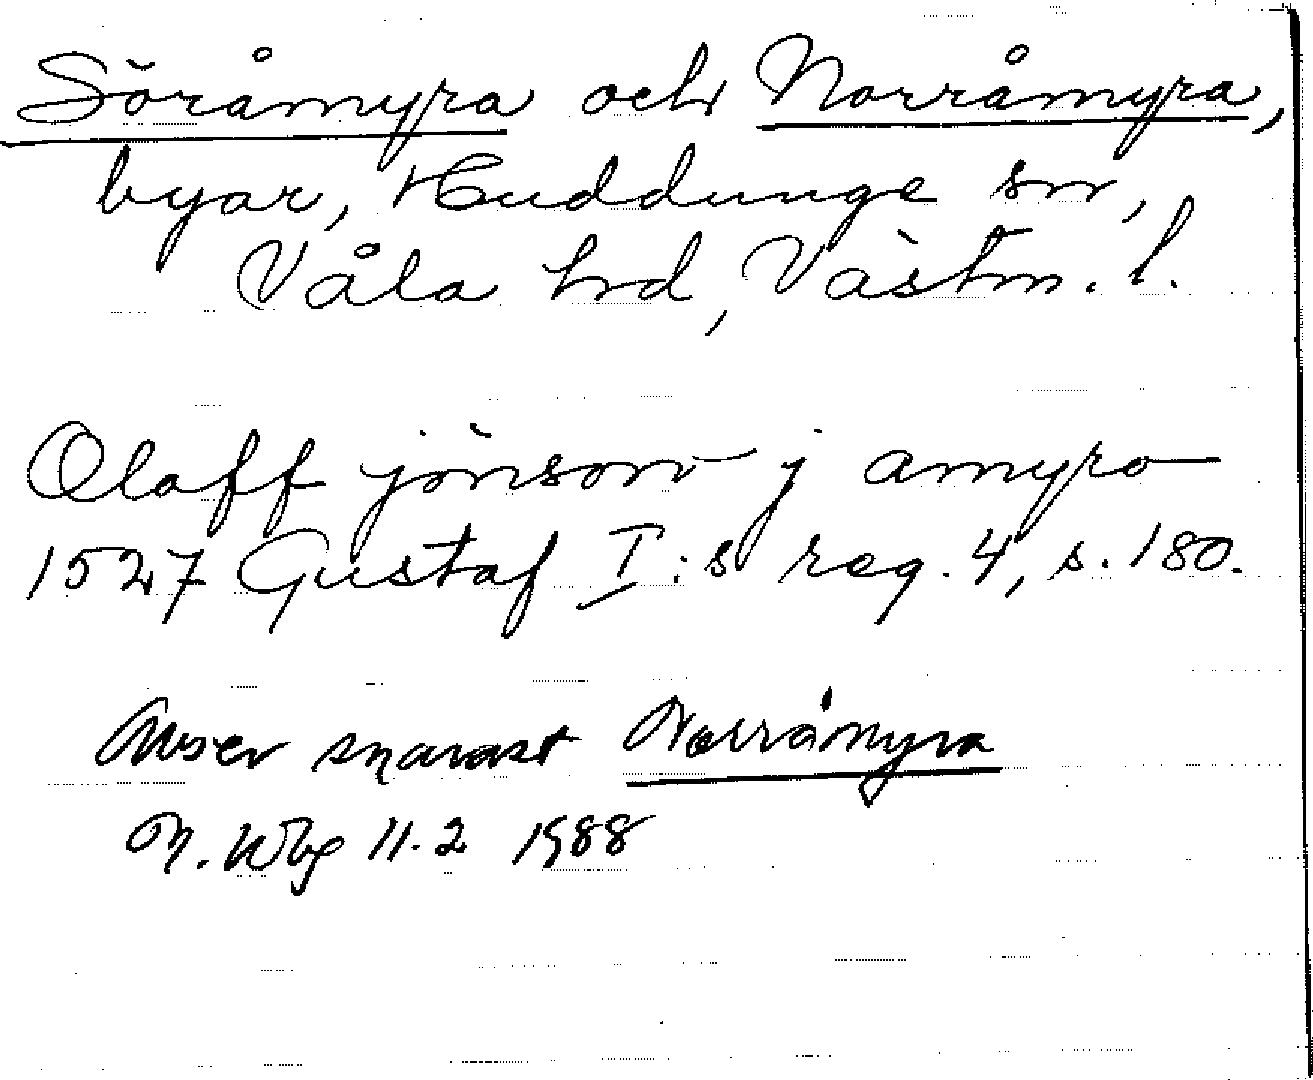 Söråmyra och Norråmyra,
byar, Huddunge sn,
Våla hd, Västm. l.
Olaff jönson j amyra
1527 Gustaf I:s reg. 4, s. 180.
Avser snarast Norråmyra
M. Wbg 11.2 1988